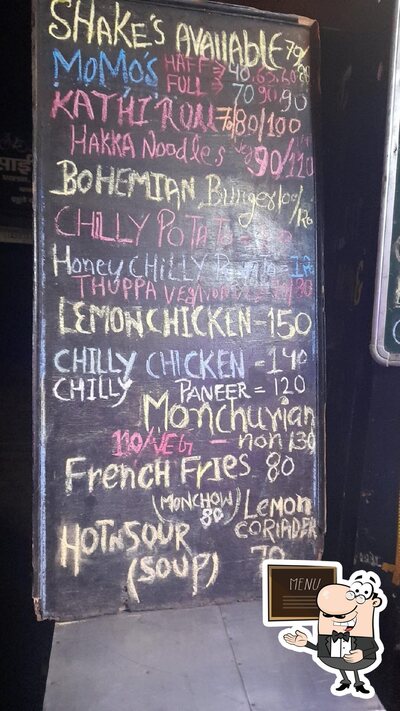 SHAKE'S AVAILABLE 70/
MOMO'S HAFF → 40.
FULL → 70 90 90
KATHI ROLL 70/80/100
HAKKA NoodLes Veg 90/110
BOHEMIAN Burger
CHILLY POTATO
Honey CHILLY
THUPPA Veg
LEMON CHICKEN - 150
CHILLY CHICKEN - 140
CHILLY PANEER = 120
Monchurian
110/VEG - non 130
French Fries 80
(MONCHOW) Lemon
80 CORIADER
HOTNSOUR 70
(SOUP)
MENU